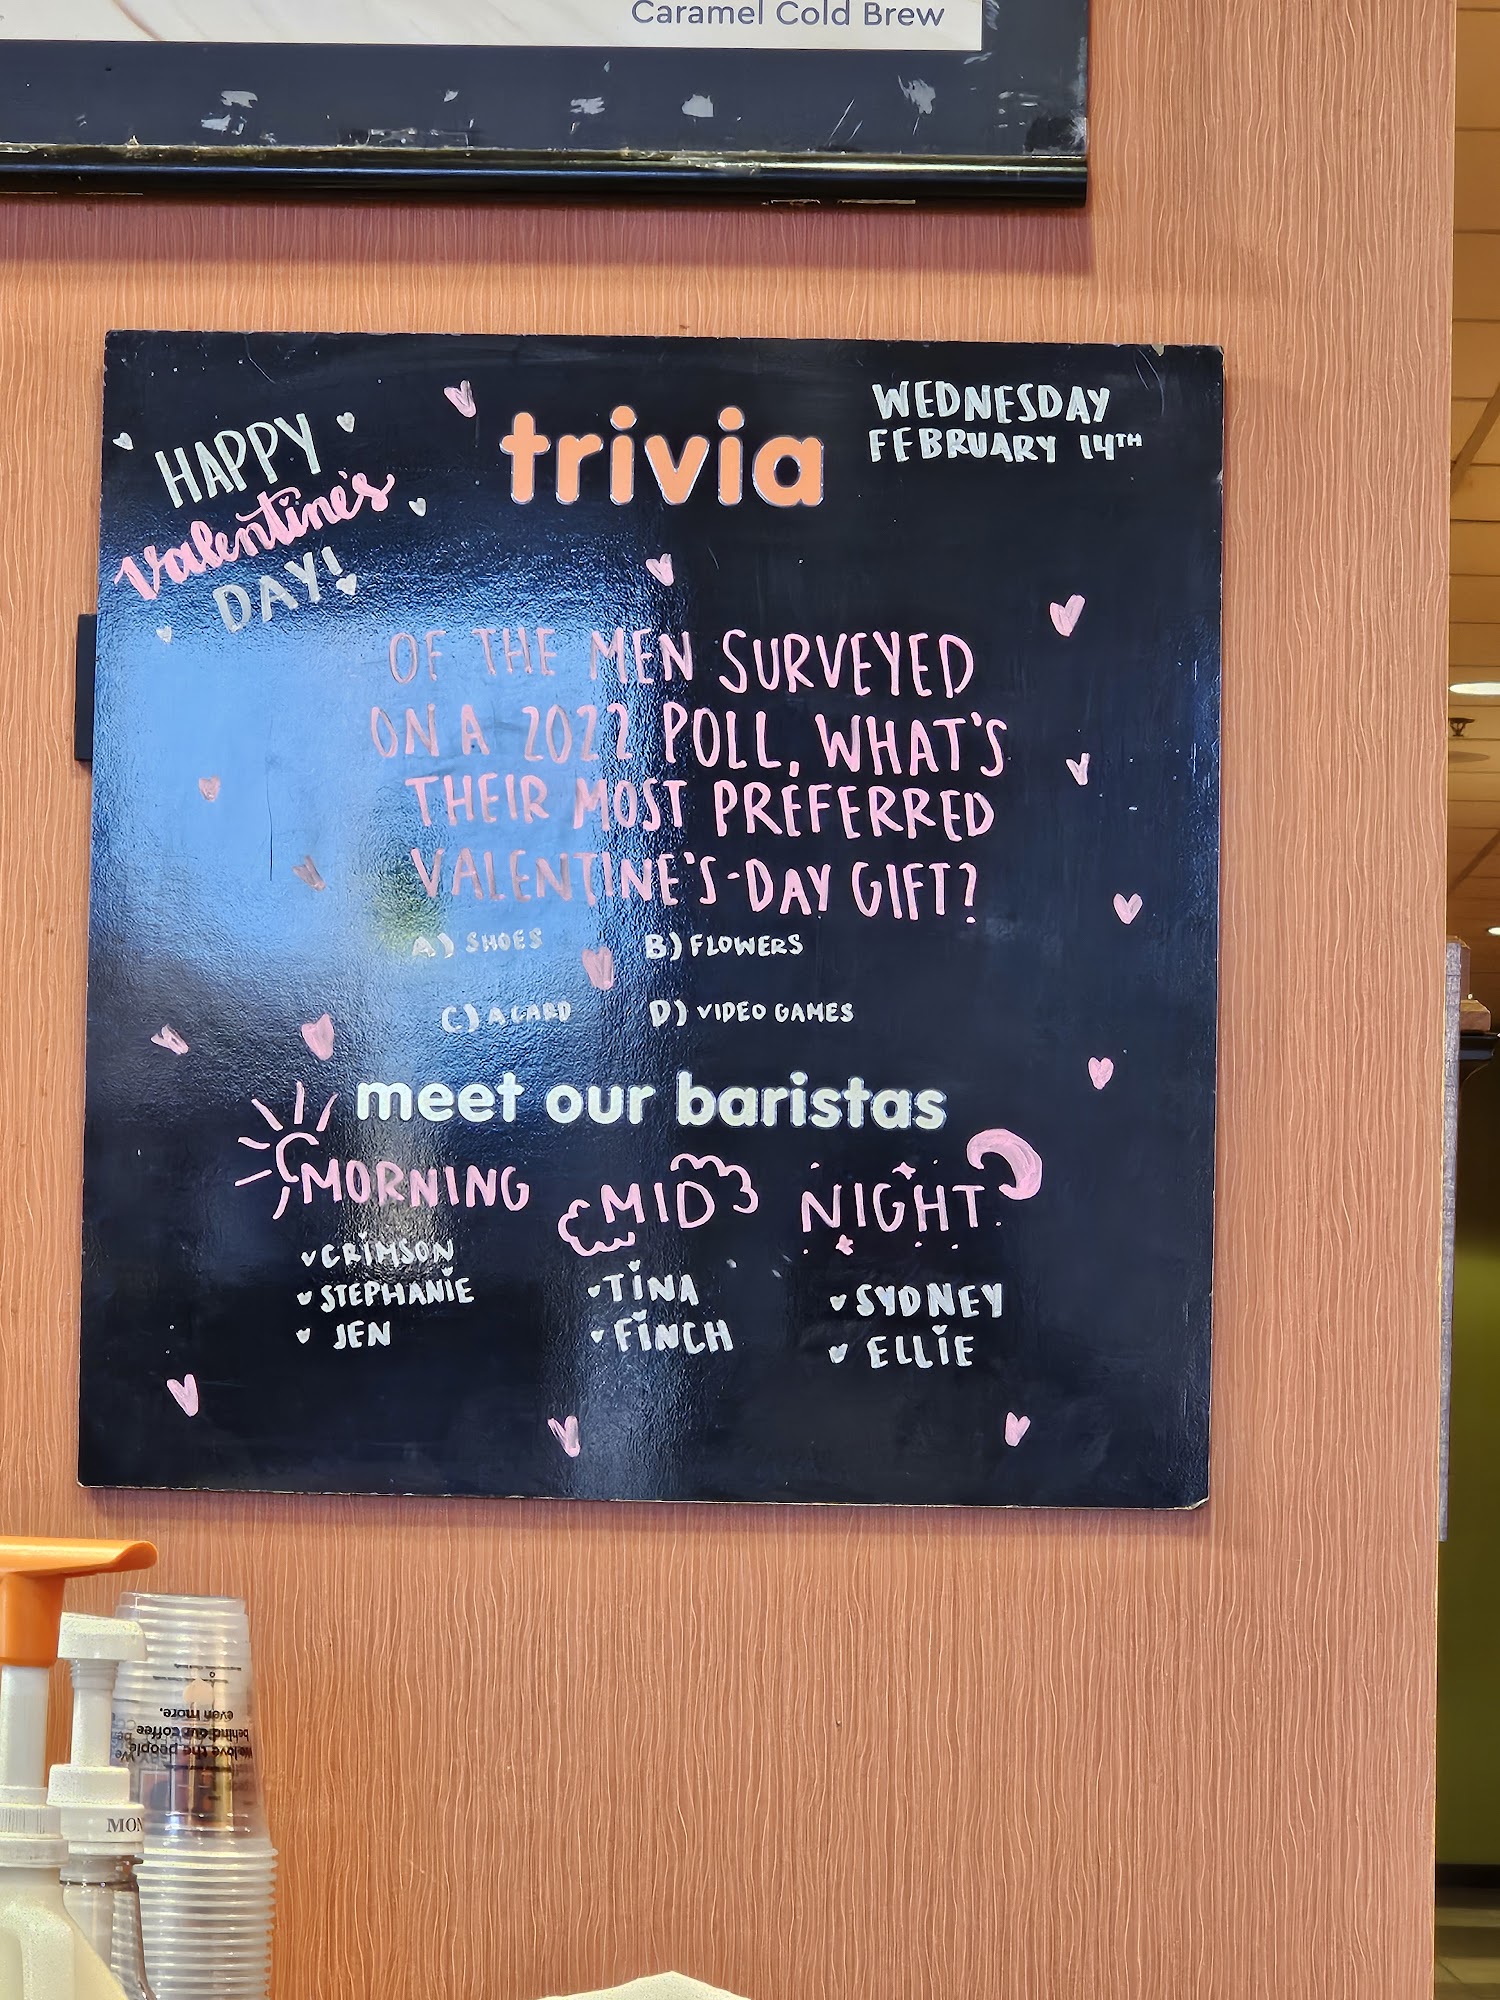 Caramel Cold Brew
HAPPY
Valentine's
DAY!
trivia
WEDNESDAY
FEBRUARY 14TH
OF THE MEN SURVEYED
ON A 2022 POLL, WHAT'S
THEIR MOST PREFERRED
VALENTINE'S-DAY GIFT?
A) SHOES B) FLOWERS
C) A CARD D) VIDEO GAMES
meet our baristas
MORNING
CRIMSON
STEPHANIE
JEN
MID
TINA
FINCH
NIGHT
SYDNEY
ELLIE
We love the people
behind our coffee
even more.
MON